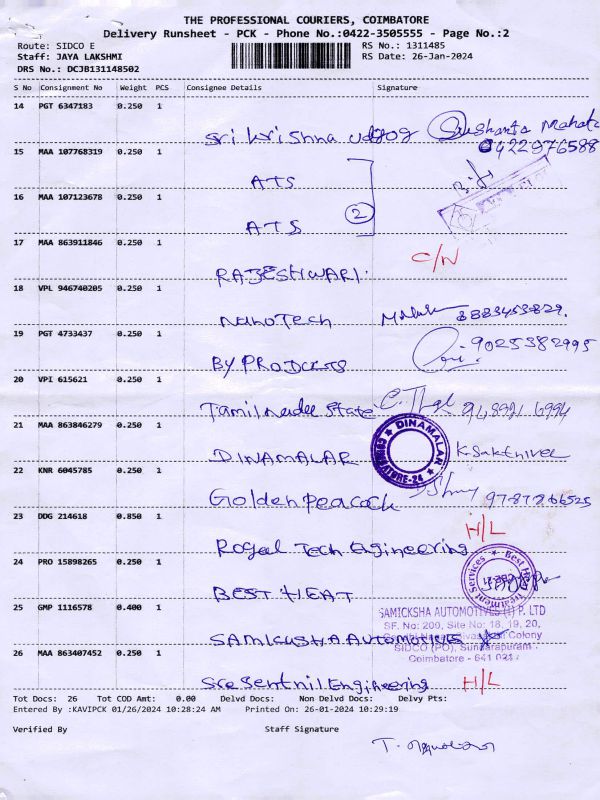 THE PROFESSIONAL COURIERS, COIMBATORE
Delivery Runsheet - PCK - Phone No.:0422-3505555 - Page No.:2
Route: SIDCO E RS No.: 1311485
Staff: JAYA LAKSHMI RS Date: 26-Jan-2024
DRS No.: DCJB131148502
S No Consignment No Weight PCS Consignee Details Signature
14 PGT 6347183 0.250 1
Sri krishna udyog Sushanta Mahata
15 MAA 107768319 0.250 1
ATS
16 MAA 107123678 0.250 1
ATS 2
17 MAA 863911846 0.250 1 C/N
RAJESHWARI.
18 VPL 946740205 0.250 1
NanoTech 8883453829.
19 PGT 4733437 0.250 1 9025382995
BY PRODUCTS
20 VPI 615621 0.250 1
Tamilnadu State
21 MAA 863846279 0.250 1 DINAMALAR
DINAMALAR K.Sakthivel
22 KNR 6045785 0.250 1
Golden peacock
23 DDG 214618 0.850 1 H/L
Royal Tech Engineering
24 PRO 15898265 0.250 1 Best Heat Treatment Services
BEST HEAT
25 GMP 1116578 0.400 1 SAMICKSHA AUTOMOTIVES (I) P. LTD
SF. No: 200, Site No: 18, 19, 20,
SAMIKUSHA AUTOMOTIVES Colony
26 MAA 863407452 0.250 1 SIDCO (PO), Sundarapuram
Coimbatore - 641 024
Sree Senthil Engineering H/L
Tot Docs: 26 Tot COD Amt: 0.00 Delvd Docs: Non Delvd Docs: Delvy Pts:
Entered By :KAVIPCK 01/26/2024 10:28:24 AM Printed On: 26-01-2024 10:29:19
Verified By Staff Signature